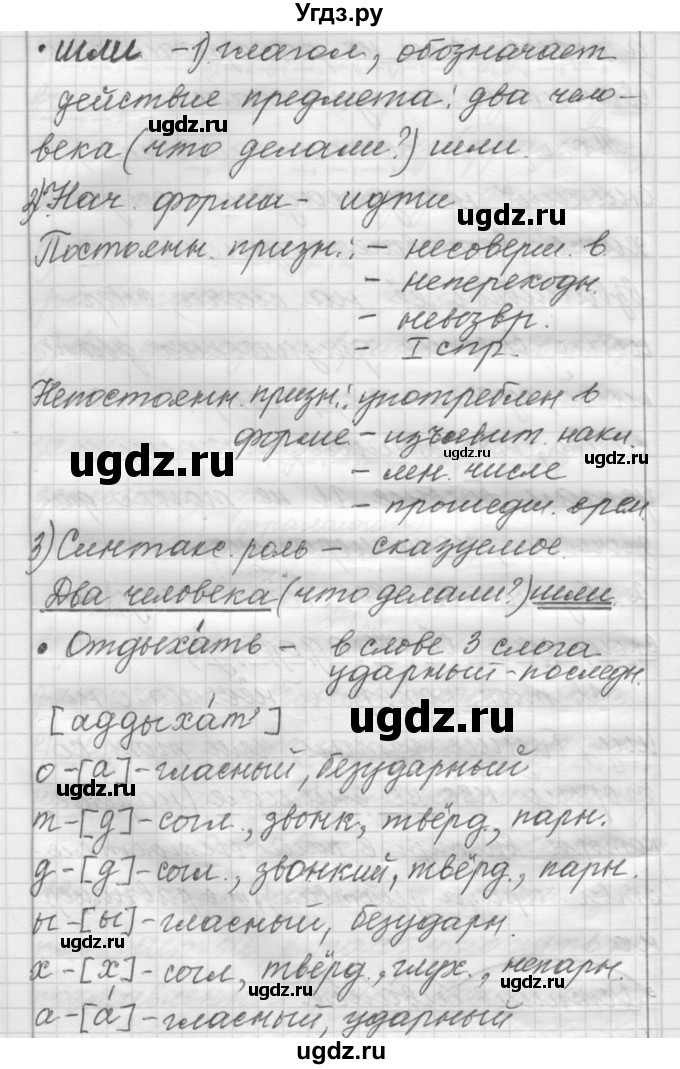 Угдз.ру
• шли – 1) глагол, обозначает
действие предмета: два чело-
ugdz.ru
века (что делали?) шли.
2) Нач. форма – идти
ugdz.ru
Постоянн. призн.: – несоверш. в.
– непереходн.
– невозвр.
– I спр.
Непостоянн. призн.: употреблен в
форме – изъявит. накл.
ugdz.ru ugdz.ru ugdz.ru
– мн. числе
– прошедш. врем.
3) Синтакс. роль – сказуемое.
ugdz.ru
Два человека (что делали?) шли.
• Отдыха́ть – в слове 3 слога
ударный – последн.
[аддыха́т']
ugdz.ru
о – [а] – гласный, безударный
ugdz.ru
т – [д] – согл., звонк., твёрд., парн.
д – [д] – согл., звонкий, твёрд., парн.
ы – [ы] – гласный, безударн.
ugdz.ru
х – [х] – согл., твёрд., глух., непарн.
ugdz.ru
а – [а́] – гласный, ударный
ugdz.ru